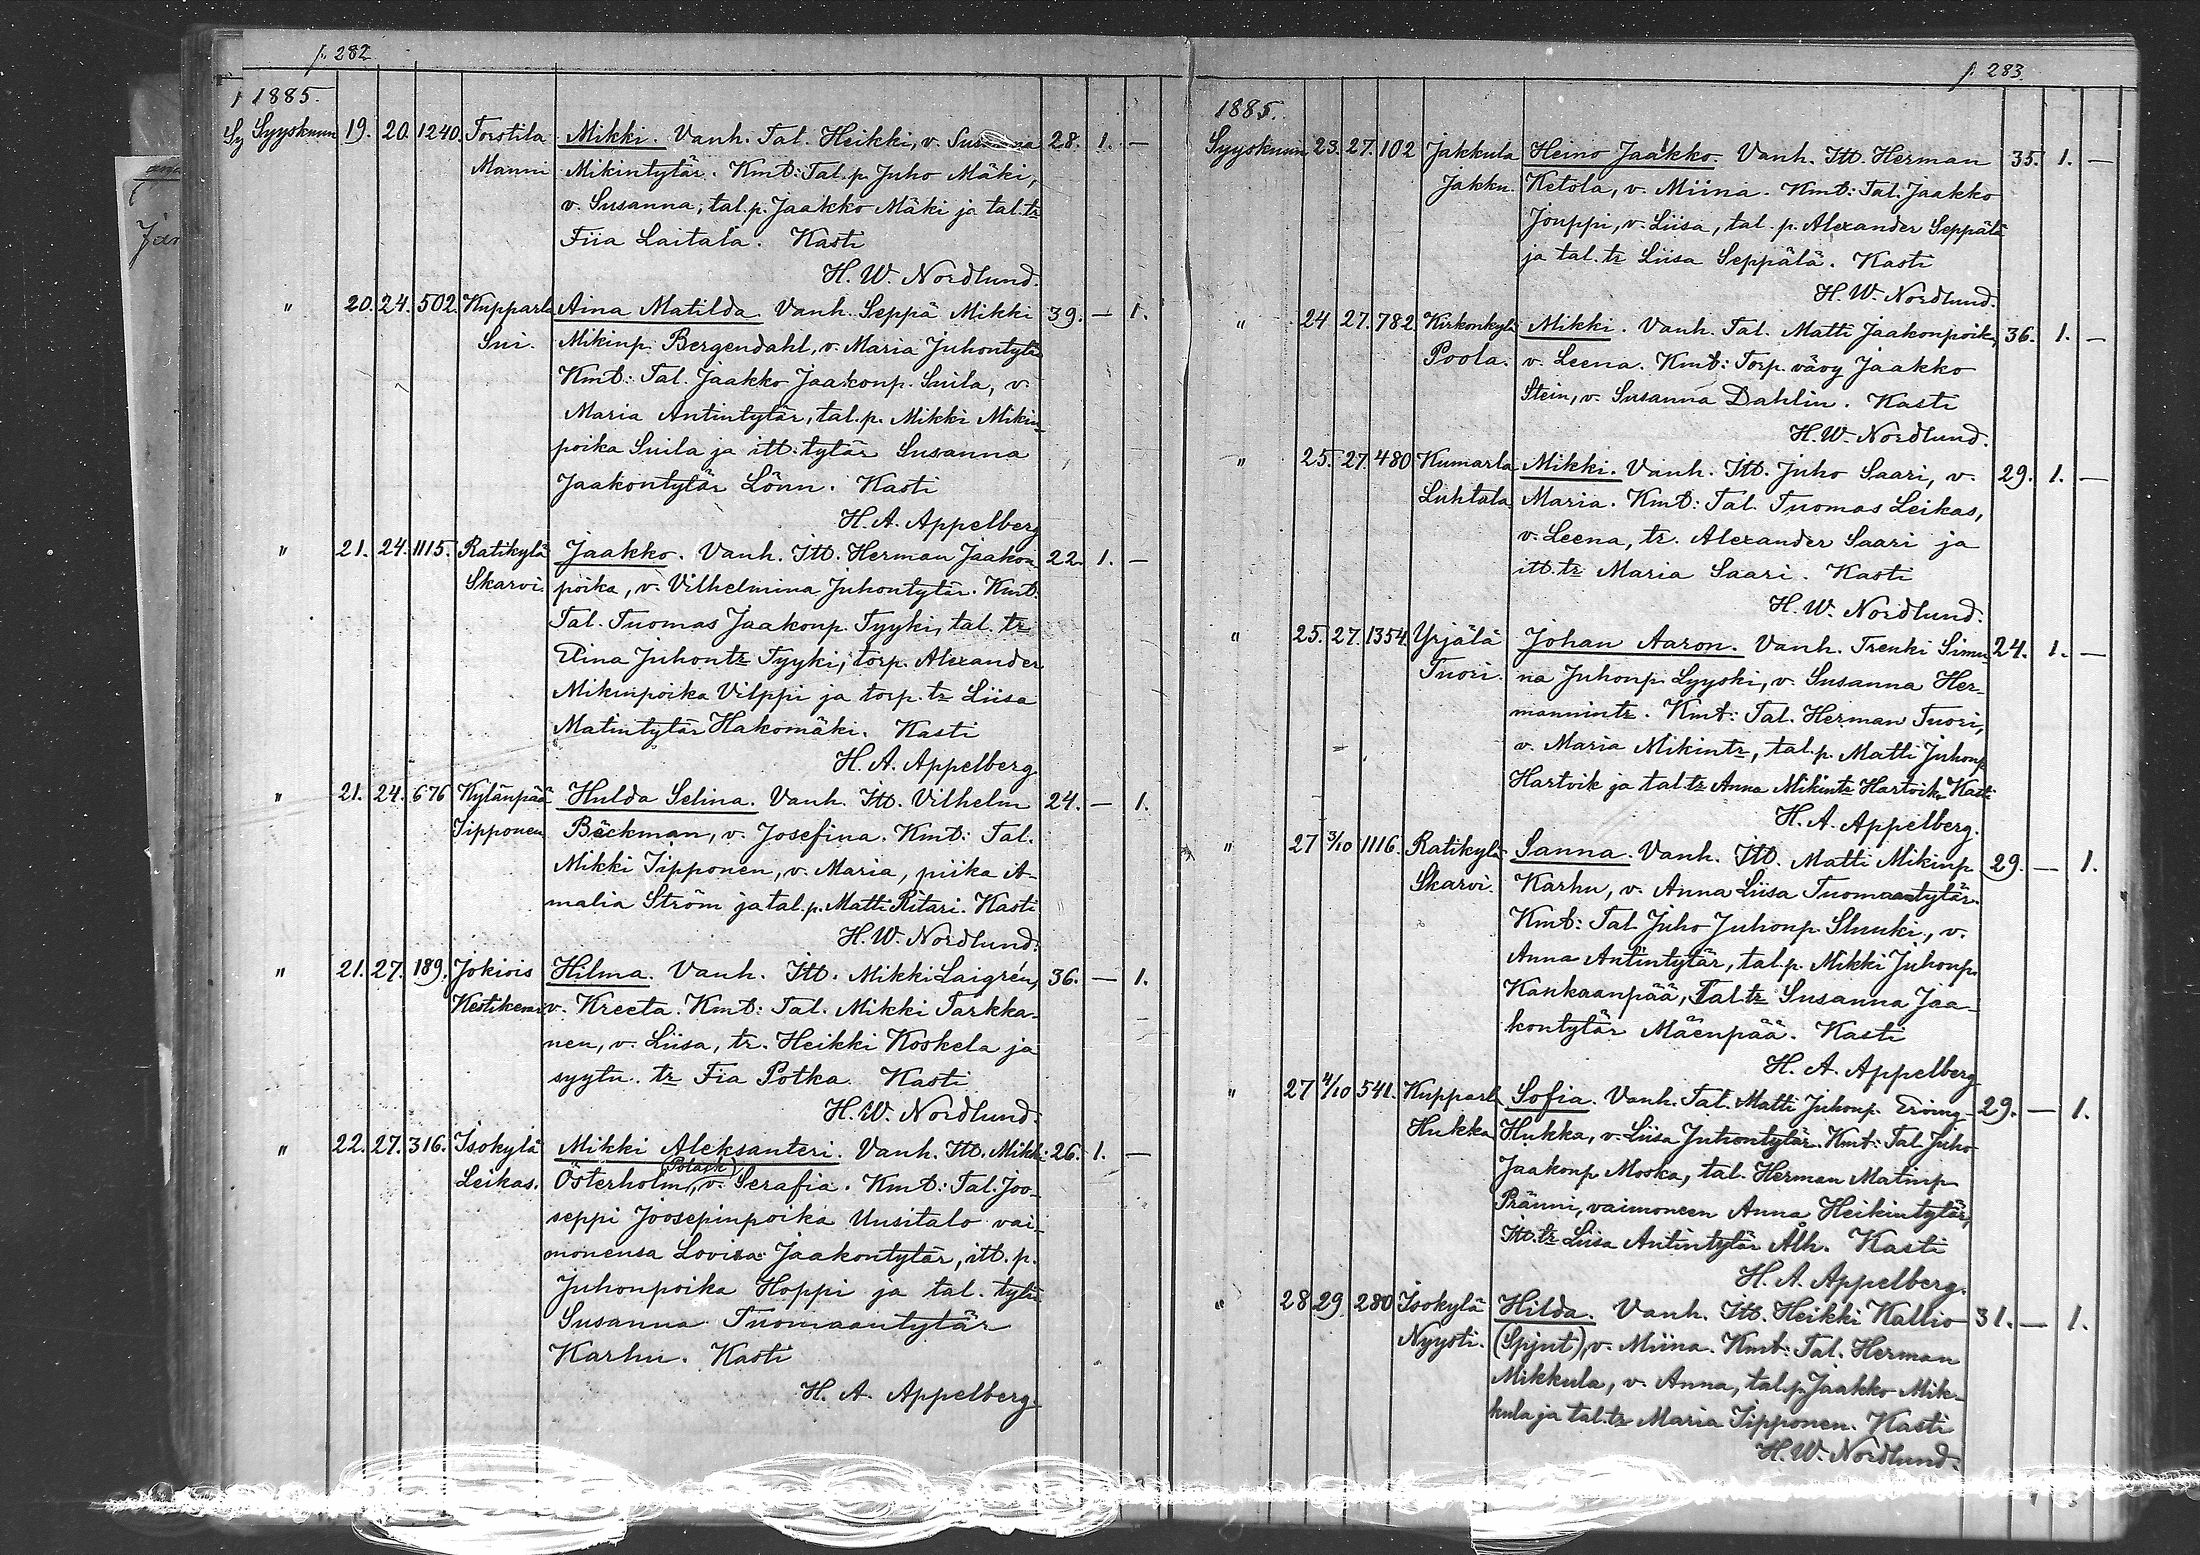 p. 282
1885.
Syyskuun 19. 20. 1240. Torstila Mikki. Vanh. Tal. Heikki, v. Susanna 28. 1. —
Manni Mikintytär. Kmt: Tal. p. Juho Mäki,
v. Susanna, tal. p. Jaakko Mäki ja tal. tr
Fiia Laitala. Kasti
H. W. Nordlund.
" 20. 24. 502. Kupparla Aina Matilda. Vanh. Seppä Mikki 39. — 1.
Sui. Mikinp. Bergendahl, v. Maria Juhontytär
Kmt: Tal. Jaakko Jaakonp. Suila, v.
Maria Antintytär, tal. p. Mikki Mikin-
poika Suila ja itt: tytär Susanna
Jaakontytär Lönn. Kasti
H. A. Appelberg
" 21. 24. 1115. Ratikylä Jaakko. Vanh. Itt. Herman Jaakon 22. 1. —
Skarvi. poika, v. Vilhelmina Juhontytär. Kmt.
Tal. Tuomas Jaakonp. Tyyki, tal. tr
Eina Juhontr Tyyki, torp. Alexander
Mikinpoika Vilppi ja torp. tr Liisa
Matintytär Hakomäki. Kasti
H. A. Appelberg
" 21. 24. 676 Kylänpää Hulda Selina. Vanh. Itt. Vilhelm 24. — 1.
Tipponen Bäckman, v. Josefina. Kmt: Tal.
Mikki Tipponen, v. Maria, piika A-
malia Ström ja tal. p. Matti Ritari. Kasti
H. W. Nordlund.
" 21. 27. 189. Jokiois Hilma. Vanh. Itt. Mikki Laigrén, 36. — 1.
v. Kreeta. Kmt: Tal. Mikki Tarkka-
nen, v. Liisa, tr. Heikki Koskela ja
syytn. tr Fia Potka. Kasti
H. W. Nordlund.
" 22. 27. 316. Isokylä Mikki Aleksanteri. Vanh. Itt. Mikki 26. 1. —
(Polack)
Leikas. Österholm, v. Serafia. Kmt: Tal. Joo-
seppi Joosepinpoika Uusitalo vai-
monensa Lovisa Jaakontytär, itt. p.
Juhonpoika Hoppi ja tal. tytär
Susanna Tuomaantytär
Karhu. Kasti
H. A. Appelberg
p. 283.
1885.
Syyskuun 23. 27. 102 Jakkula Heino Jaakko. Vanh. Itt. Herman 35. 1. —
Jakku. Ketola, v. Miina. Kmt: Tal. Jaakko
Jouppi, v. Liisa, tal. p. Alexander Seppälä
ja tal. tr Liisa Seppälä. Kasti
H. W. Nordlund.
" 24 27. 782. Kirkonkylä Mikki. Vanh. Tal. Matti Jaakonpoika, 36. 1. —
Poola. v. Leena. Kmt: Torp. vävy Jaakko
Stein, v. Susanna Dahlin. Kasti
H. W. Nordlund.
" 25. 27. 480 Kumarla Mikki. Vanh. Itt. Juho Saari, v. 29. 1. —
Luhtala. Maria. Kmt: Tal. Tuomas Leikas,
v. Leena, tr. Alexander Saari ja
itt. tr Maria Saari. Kasti
H. W. Nordlund.
" 25. 27. 1354. Yrjälä Johan Aaron. Vanh. Trenki Simu- 24. 1. —
Tuori. na Juhonp. Lyyski, v. Susanna Her-
mannintr. Kmt: Tal. Herman Tuori,
v. Maria Mikintr, tal. p. Matti Juhonp
Hartvik ja tal. tr Anna Mikintr Hartvik. Kasti
H. A. Appelberg.
" 27 3/10 1116. Ratikylä Sanna. Vanh. Itt. Matti Mikinp 29. — 1.
Skarvi. Karhu, v. Anna Liisa Tuomaantytär.
Kmt: Tal. Juho Juhonp. Sluuki, v.
Anna Antintytär, tal. p. Mikki Juhonp.
Kankaanpää, Tal. tr Susanna Jaa-
kontytär Mäenpää. Kasti
H. A. Appelberg
" 27 4/10 541. Kupparla Sofia. Vanh. Tal. Matti Juhonp. 29. — 1.
Hukka Hukka, v. Liisa Juhontytär. Kmt: Tal. Juho
Jaakonp. Moska, tal. Herman Matinp
Pränni, vaimoneen Anna Heikintytär,
Itt. tr Liisa Antintytär Ålh. Kasti
H. A. Appelberg.
" 28 29. 280 Isokylä Hilda. Vanh. Itt. Heikki Kallio 31. — 1.
Nyysti. (Spjut), v. Miina. Kmt: Tal. Herman
Mikkula, v. Anna, tal. p. Jaakko Mik-
kula ja tal. tr Maria Tipponen. Kasti
H. W. Nordlund.